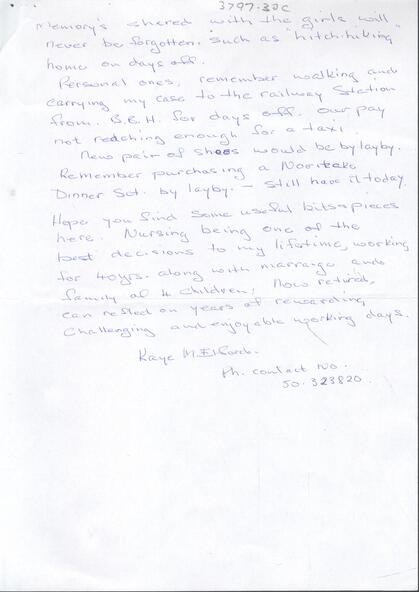 3797.30c
Memory's shared with the girls will
never be forgotten. Such as "hitch-hiking
home on days off.
Personal ones, remember walking and
carrying my case to the railway Station
from B.B.H. for days off. Our pay
not reaching enough for a taxi.
New pair of shoes would be by layby.
Remember purchasing a Noritake
Dinner Set. by layby. – Still have it today.
Hope you find some useful bits + pieces
here. Nursing being one of the
best decisions to my lifetime, working
for 40yrs. along with marraige and
family of 4 children; Now retired,
can reflect on years of rewarding,
Challenging and enjoyable working days.
Kaye M.
Ph. contact No.
50. 323820.